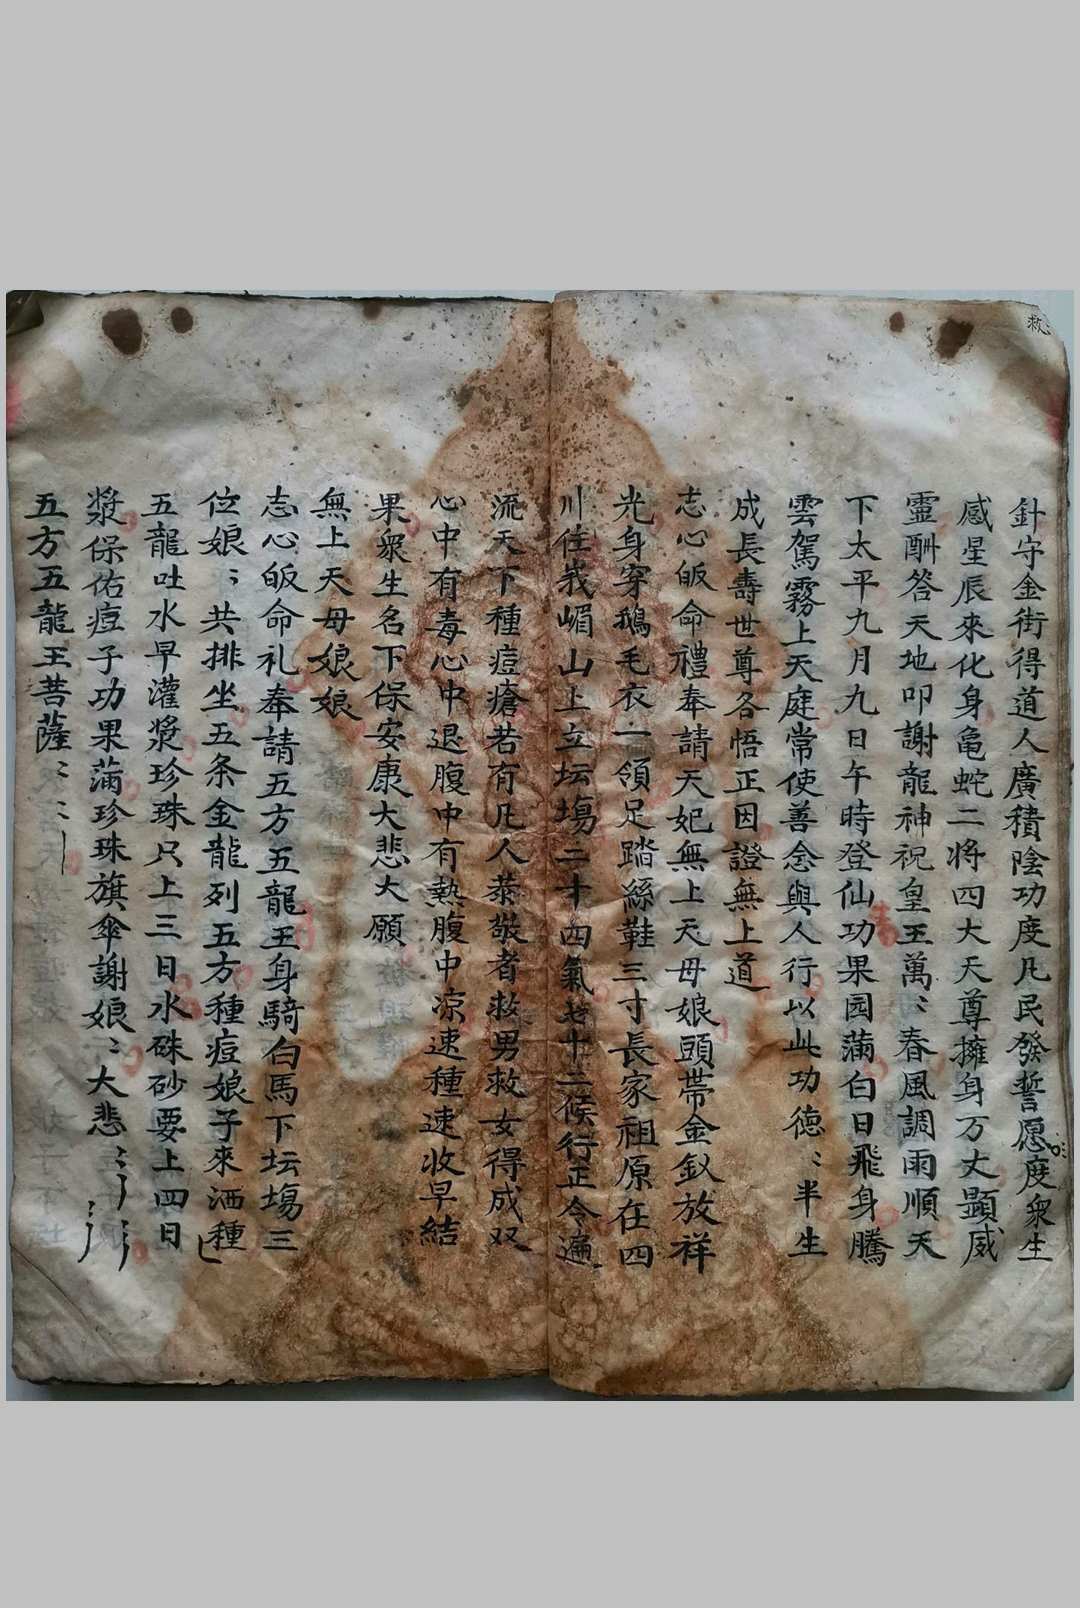 救
針守金街得道人廣積陰功度凡民發誓愿度衆生
感星辰來化身龟蛇二将四大天尊擁身万丈顯威
靈酧答天地叩謝龍神祝皇王萬〻春風調雨順天
下太平九月九日午時登仙功果园蒲白日飛身騰
雲駕霧上天庭常使善念與人行以此功德〻半生
成長壽世尊各悟正因證無上道
志心皈命禮奉請天妃無上天母娘頭帶金釵放祥
光身穿鵝毛衣一領足踏絲鞋三寸長家祖原在四
川徃峩嵋山上立坛塲二十四氣七十二候行正令遍
流天下種痘瘡若有凡人恭敬者救男救女得成双
心中有毒心中退腹中有熱腹中凉速種速收早結
果衆生名下保安康大悲大願
無上天母娘娘
志心皈命礼奉請五方五龍王身騎白馬下坛塲三
位娘〻共排坐五条金龍列五方種痘娘子來洒種
五龍吐水早灌漿珍珠只上三日水硃砂要上四日
漿保佑痘子功果蒲珍珠旗傘謝娘〻大悲〻
五方五龍王菩薩〻〻